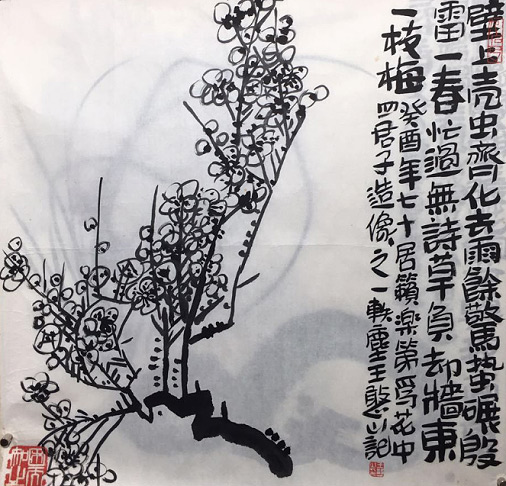 壁上壳虫齊化去雨餘驚蛰碾殷
雷一春忙過無詩草負却牆東
一枝梅 癸酉年七十居籟楽第写花中
四君子造像之一軼塵王憨山記